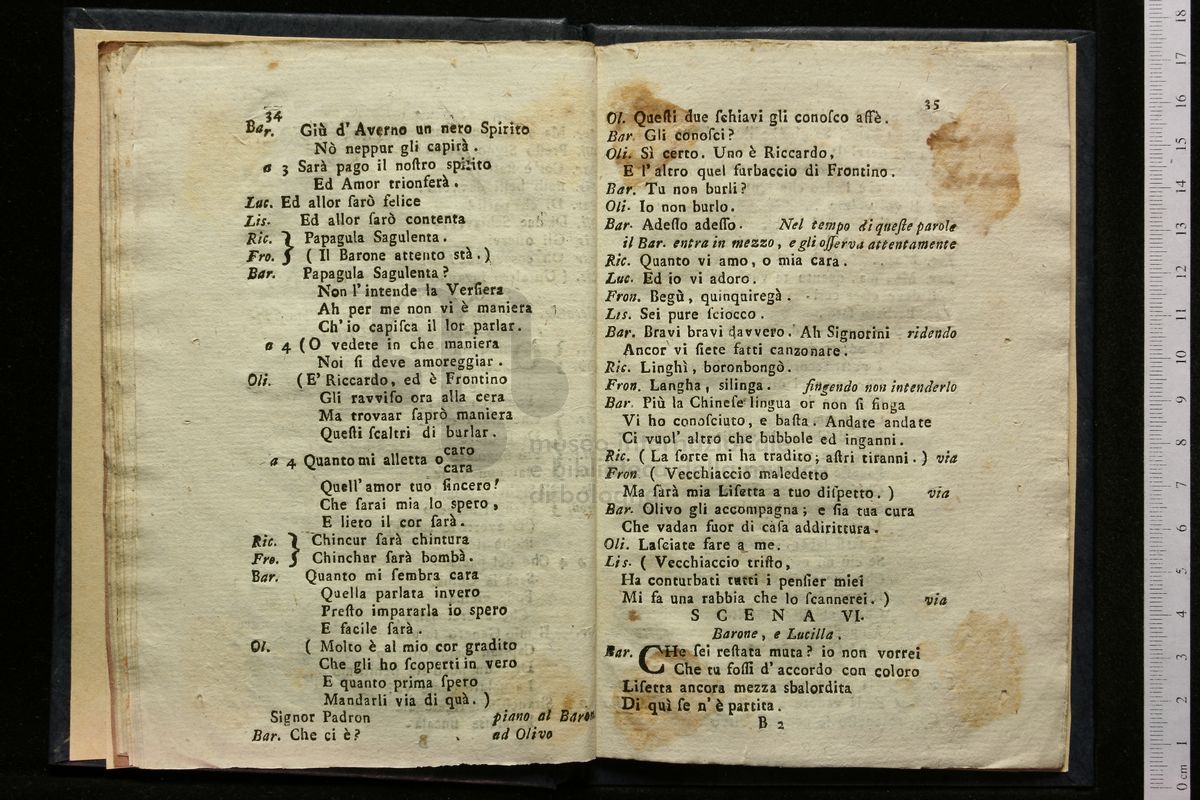 34
Bar. Giù d'Averno un nero Spirito
Nò neppur gli capirà.
a 3 Sarà pago il noſtro spirito
Ed Amor trionferà.
Luc. Ed allor ſarò felice
Lis. Ed allor ſarò contenta
Ric. } Papagula Sagulenta.
Fro. } ( Il Barone attento stà. )
Bar. Papagula Sagulenta?
Non l'intende la Verſiera
Ah per me non vi è maniera
Ch'io capiſca il lor parlar.
a 4 (O vedete in che maniera
Noi ſi deve amoreggiar.
Oli. (E' Riccardo, ed è Frontino
Gli ravviſo ora alla cera
Ma trovaar ſaprò maniera
Queſti ſcaltri di burlar.
a 4 Quanto mi alletta o caro
cara
Quell'amor tuo ſincero!
Che ſarai mia lo spero,
E lieto il cor ſarà.
Ric. } Chincur ſarà chintura
Fro. } Chinchur ſarà bombà.
Bar. Quanto mi ſembra cara
Quella parlata invero
Preſto impararla io spero
E facile ſarà.
Ol. ( Molto è al mio cor gradito
Che gli ho ſcoperti in vero
E quanto prima ſpero
Mandarli via di quà. )
Signor Padron piano al Baron
Bar. Che ci è? ad Olivo
35
Ol. Queſti due ſchiavi gli conoſco affè.
Bar. Gli conoſci?
Oli. Sì certo. Uno è Riccardo,
E l'altro quel furbaccio di Frontino.
Bar. Tu non burli?
Oli. Io non burlo.
Bar. Adeſſo adeſſo. Nel tempo di queſte parole
il Bar. entra in mezzo, e gli oſſerva attentamente
Ric. Quanto vi amo, o mia cara.
Luc. Ed io vi adoro.
Fron. Begù, quinquiregà.
Lis. Sei pure ſciocco.
Bar. Bravi bravi davvero. Ah Signorini ridendo
Ancor vi ſiete fatti canzonare.
Ric. Linghì, boronbongò.
Fron. Langha, silinga. fingendo non intenderlo
Bar. Più la Chineſe lingua or non ſi finga
Vi ho conoſciuto, e baſta. Andate andate
Ci vuol' altro che bubbole ed inganni.
Ric. ( La ſorte mi ha tradito; aſtri tiranni. ) via
Fron ( Vecchiaccio maledetto
Ma ſarà mia Liſetta a tuo diſpetto. ) via
Bar. Olivo gli accompagna; e ſia tua cura
Che vadan fuor di caſa addirittura.
Oli. Laſciate fare a me.
Lis. ( Vecchiaccio triſto,
Ha conturbati tutti i penſier miei
Mi fa una rabbia che lo ſcannerei. ) via
SCENA VI.
Barone, e Lucilla.
Bar. CHe ſei reſtata muta? io non vorrei
Che tu foſſi d'accordo con coloro
Liſetta ancora mezza sbalordita
Di quì ſe n'è partita.
B 2